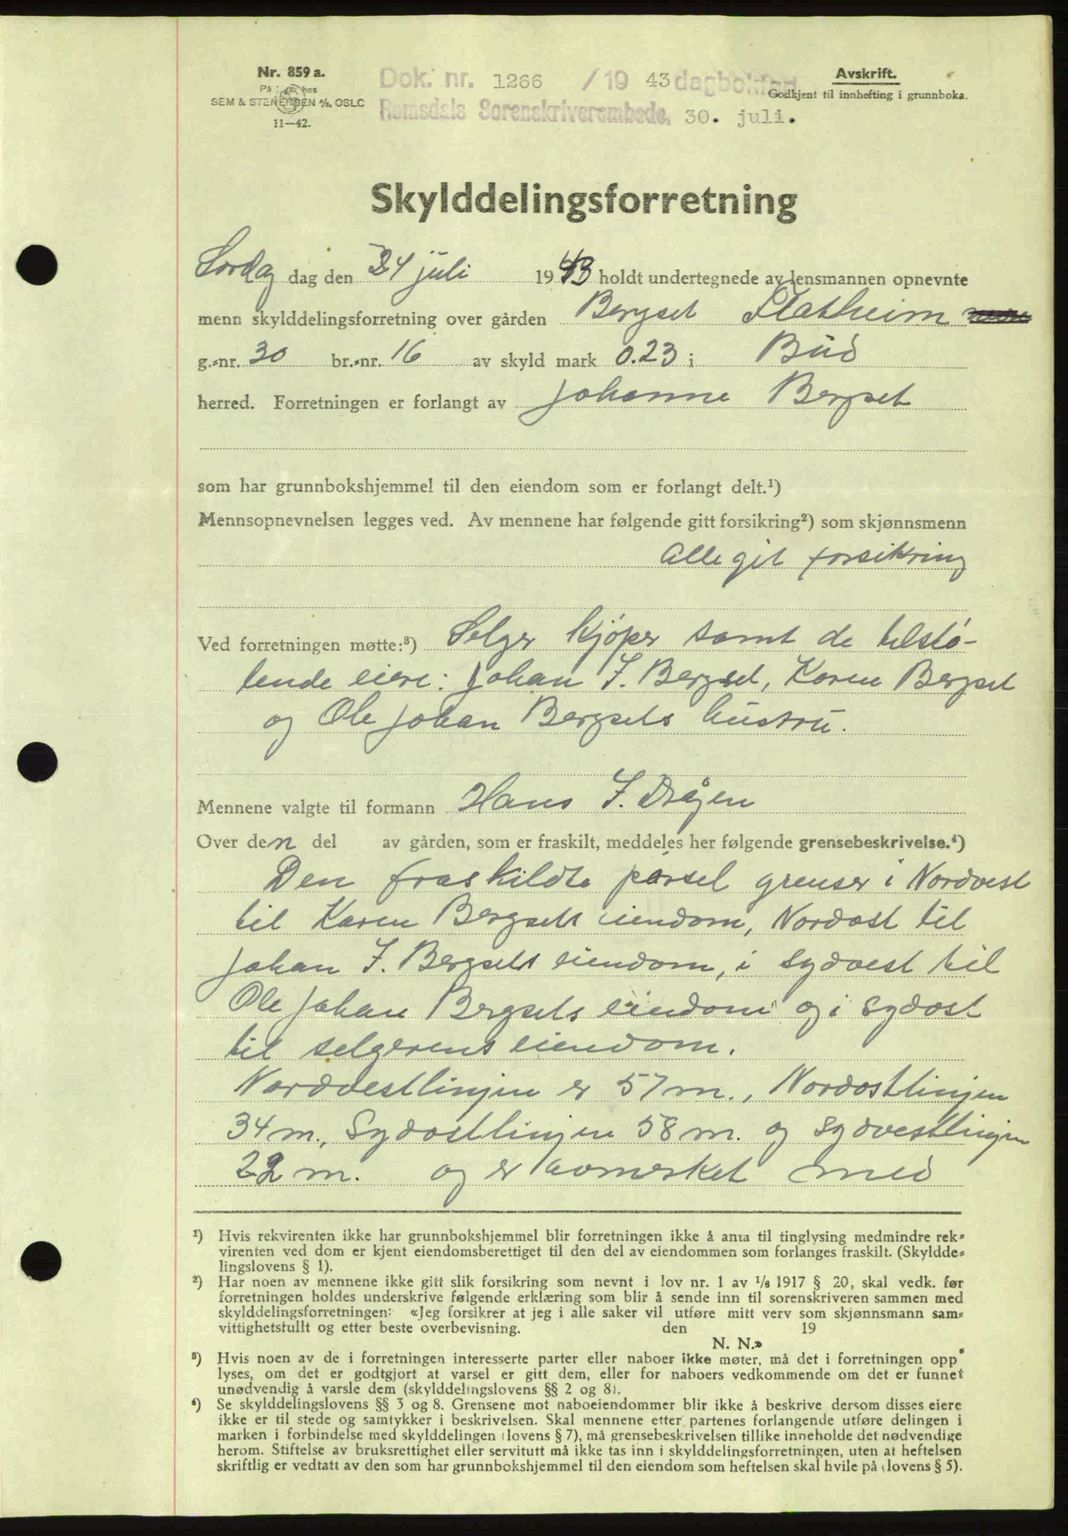 Nr. 859 a.
På lager hos
SEM & STENERSEN A/S, OSLO
11—42.
Dok. nr. 1266 /19 43 dagbokført
Romsdals Sorenskriverembede, 30. juli.
Avskrift.
Godkjent til innhefting i grunnboka.
Skylddelingsforretning
Lørdag dag den 24 juli 1943 holdt undertegnede av lensmannen opnevnte
menn skylddelingsforretning over gården Bergset Slatheim
g.-nr. 30 br.-nr. 16 av skyld mark 0.23 i Bud
herred. Forretningen er forlangt av Johanne Bergset
som har grunnbokshjemmel til den eiendom som er forlangt delt.¹)
Mennsopnevnelsen legges ved. Av mennene har følgende gitt forsikring²) som skjønnsmenn
Alle git forsikring
Ved forretningen møtte:³) Selger kjøper samt de tilstø-
tende eiere: Johan I. Bergset, Karen Bergset
og Ole Johan Bergsets hustru.
Mennene valgte til formann Hans I. Drågen
Over den del av gården, som er fraskilt, meddeles her følgende grensebeskrivelse.⁴)
Den fraskildte parsel grenser i Nordvest
til Karen Bergsets eiendom, Nordost til
Johan I. Bergsets eiendom, i Sydvest til
Ole Johan Bergsets eiendom og i Sydost
til selgerens eiendom.
Nordvestlinjen er 57 m., Nordostlinjen
34 m., Sydostlinjen 58 m. og Sydvestlinjen
22 m. og er avmerket med
¹) Hvis rekvirenten ikke har grunnbokshjemmel blir forretningen ikke å anta til tinglysing medmindre rek-
virenten ved dom er kjent eiendomsberettiget til den del av eiendommen som forlanges fraskilt. (Skyldde-
lingslovens § 1).
²) Har noen av mennene ikke gitt slik forsikring som nevnt i lov nr. 1 av 1/6 1917 § 20, skal vedk. før
forretningen holdes underskrive følgende erklæring som blir å sende inn til sorenskriveren sammen med
skylddelingsforretningen: «Jeg forsikrer at jeg i alle saker vil utføre mitt verv som skjønnsmann sam-
vittighetsfullt og etter beste overbevisning. den 19
N. N.»
³) Hvis noen av de i forretningen interesserte parter eller naboer ikke møter, må det i forretningen opp-
lyses, om det er godtgjort at varsel er gitt dem, eller for naboers vedkommende om det er funnet
unødvendig å varsle dem (skylddelingslovens §§ 2 og 8).
⁴) Se skylddelingslovens §§ 3 og 8. Grensene mot naboeiendommer blir ikke å beskrive dersom disses eiere
ikke er til stede og samtykker i beskrivelsen. Skal mennene etter partenes forlangende utføre delingen i
marken i forbindelse med skylddelingen (lovens § 7), må grensebeskrivelsen tillike inneholde det nødvendige
herom. Stiftelse av bruksrettighet eller servitutt må ikke tas inn i skylddelingsforretningen, uten at heftelsen
skriftlig er vedtatt av den som har grunnbokshjemmel til den eiendom som heftelsen skal hvile på (lovens § 5).